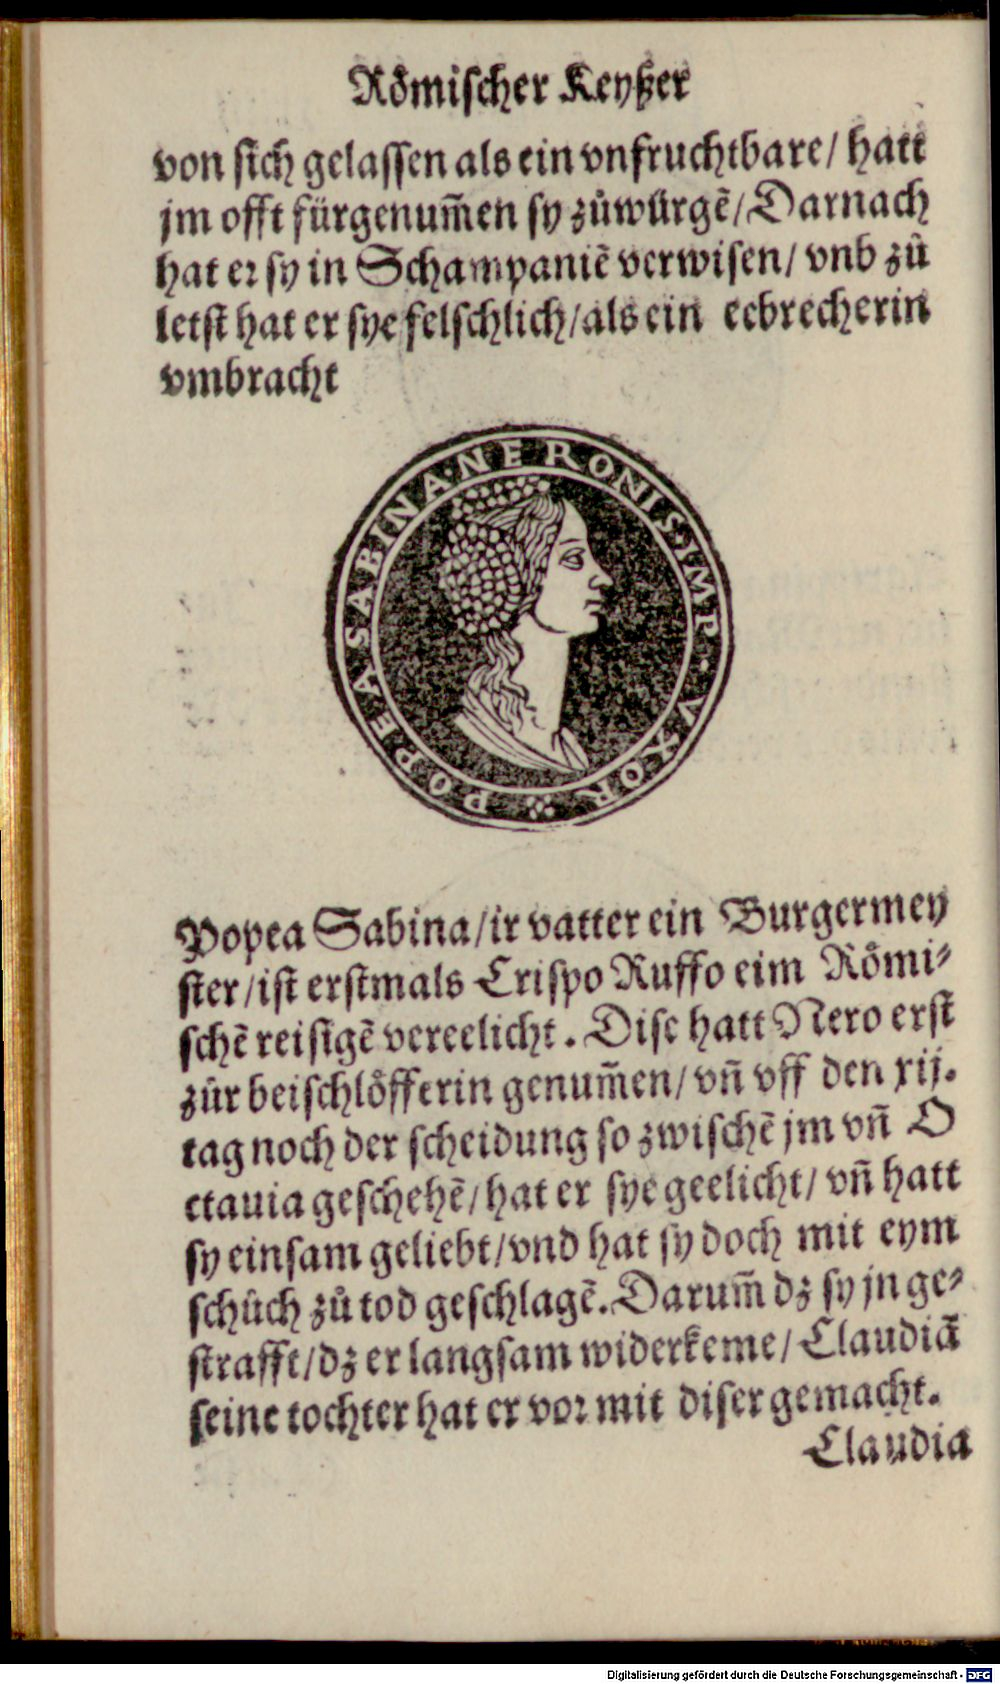 Roͤmischer Keyßer
von sich gelassen als ein vnfruchtbare/ hatt
jm offt fürgenum̃en sy zuͦwürgẽ/ Darnach
hat er sy in Schampaniẽ verwisen/ vnd zuͦ
letst hat er sye felschlich/ als ein eebrecherin
vmbracht
POPEA SABINA · NERONIS · IMP · VXOR
Popea Sabina/ ir vatter ein Burgermey
ster/ ist erstmals Crispo Ruffo eim Roͤmi⸗
schẽ reisigẽ vereelicht. Dise hatt Nero erst
zuͦr beischloͤfferin genum̃en/ vñ vff den xij.
tag noch der scheidung so zwischẽ jm vñ O
ctauia geschehẽ/ hat er sye geelicht/ vñ hatt
sy einsam geliebt/ vnd hat sy doch mit eym
schuͦch zuͦ tod geschlagẽ. Darum̃ dz sy jn ge⸗
strafft/ dz er langsam widerkeme/ Claudiã
seine tochter hat er vor mit diser gemacht.
Claudia
Digitalisierung gefördert durch die Deutsche Forschungsgemeinschaft - DFG